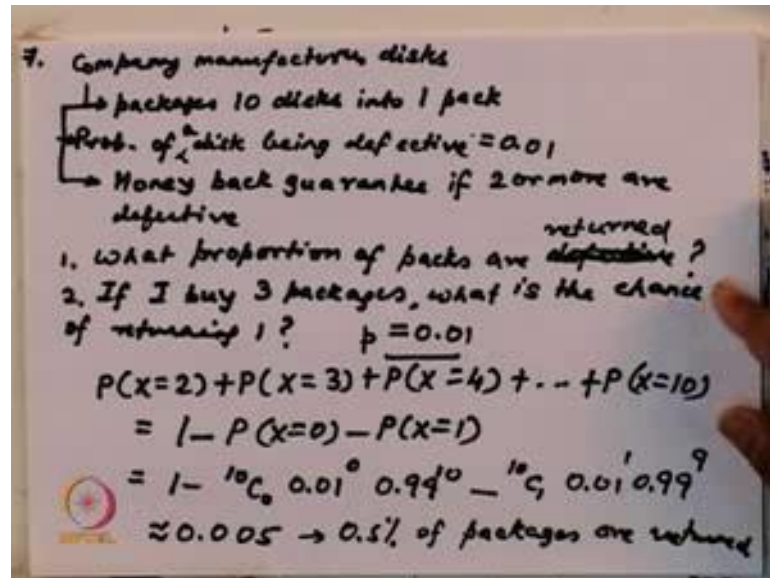 7. Company manufactures disks
↳ packages 10 disks into 1 pack
Prob. of a disk being defective = 0.01
→ Money back guarantee if 2 or more are
defective
1. What proportion of packs are returned ?
2. If I buy 3 packages, what is the chance
of returning 1 ? p = 0.01
P(X=2) + P(X=3) + P(X=4) + ... + P(X=10)
= 1 - P(X=0) - P(X=1)
= 1 - ¹⁰C₀ 0.01⁰ 0.99¹⁰ - ¹⁰C₁ 0.01¹ 0.99⁹
≈ 0.005 → 0.5% of packages are returned